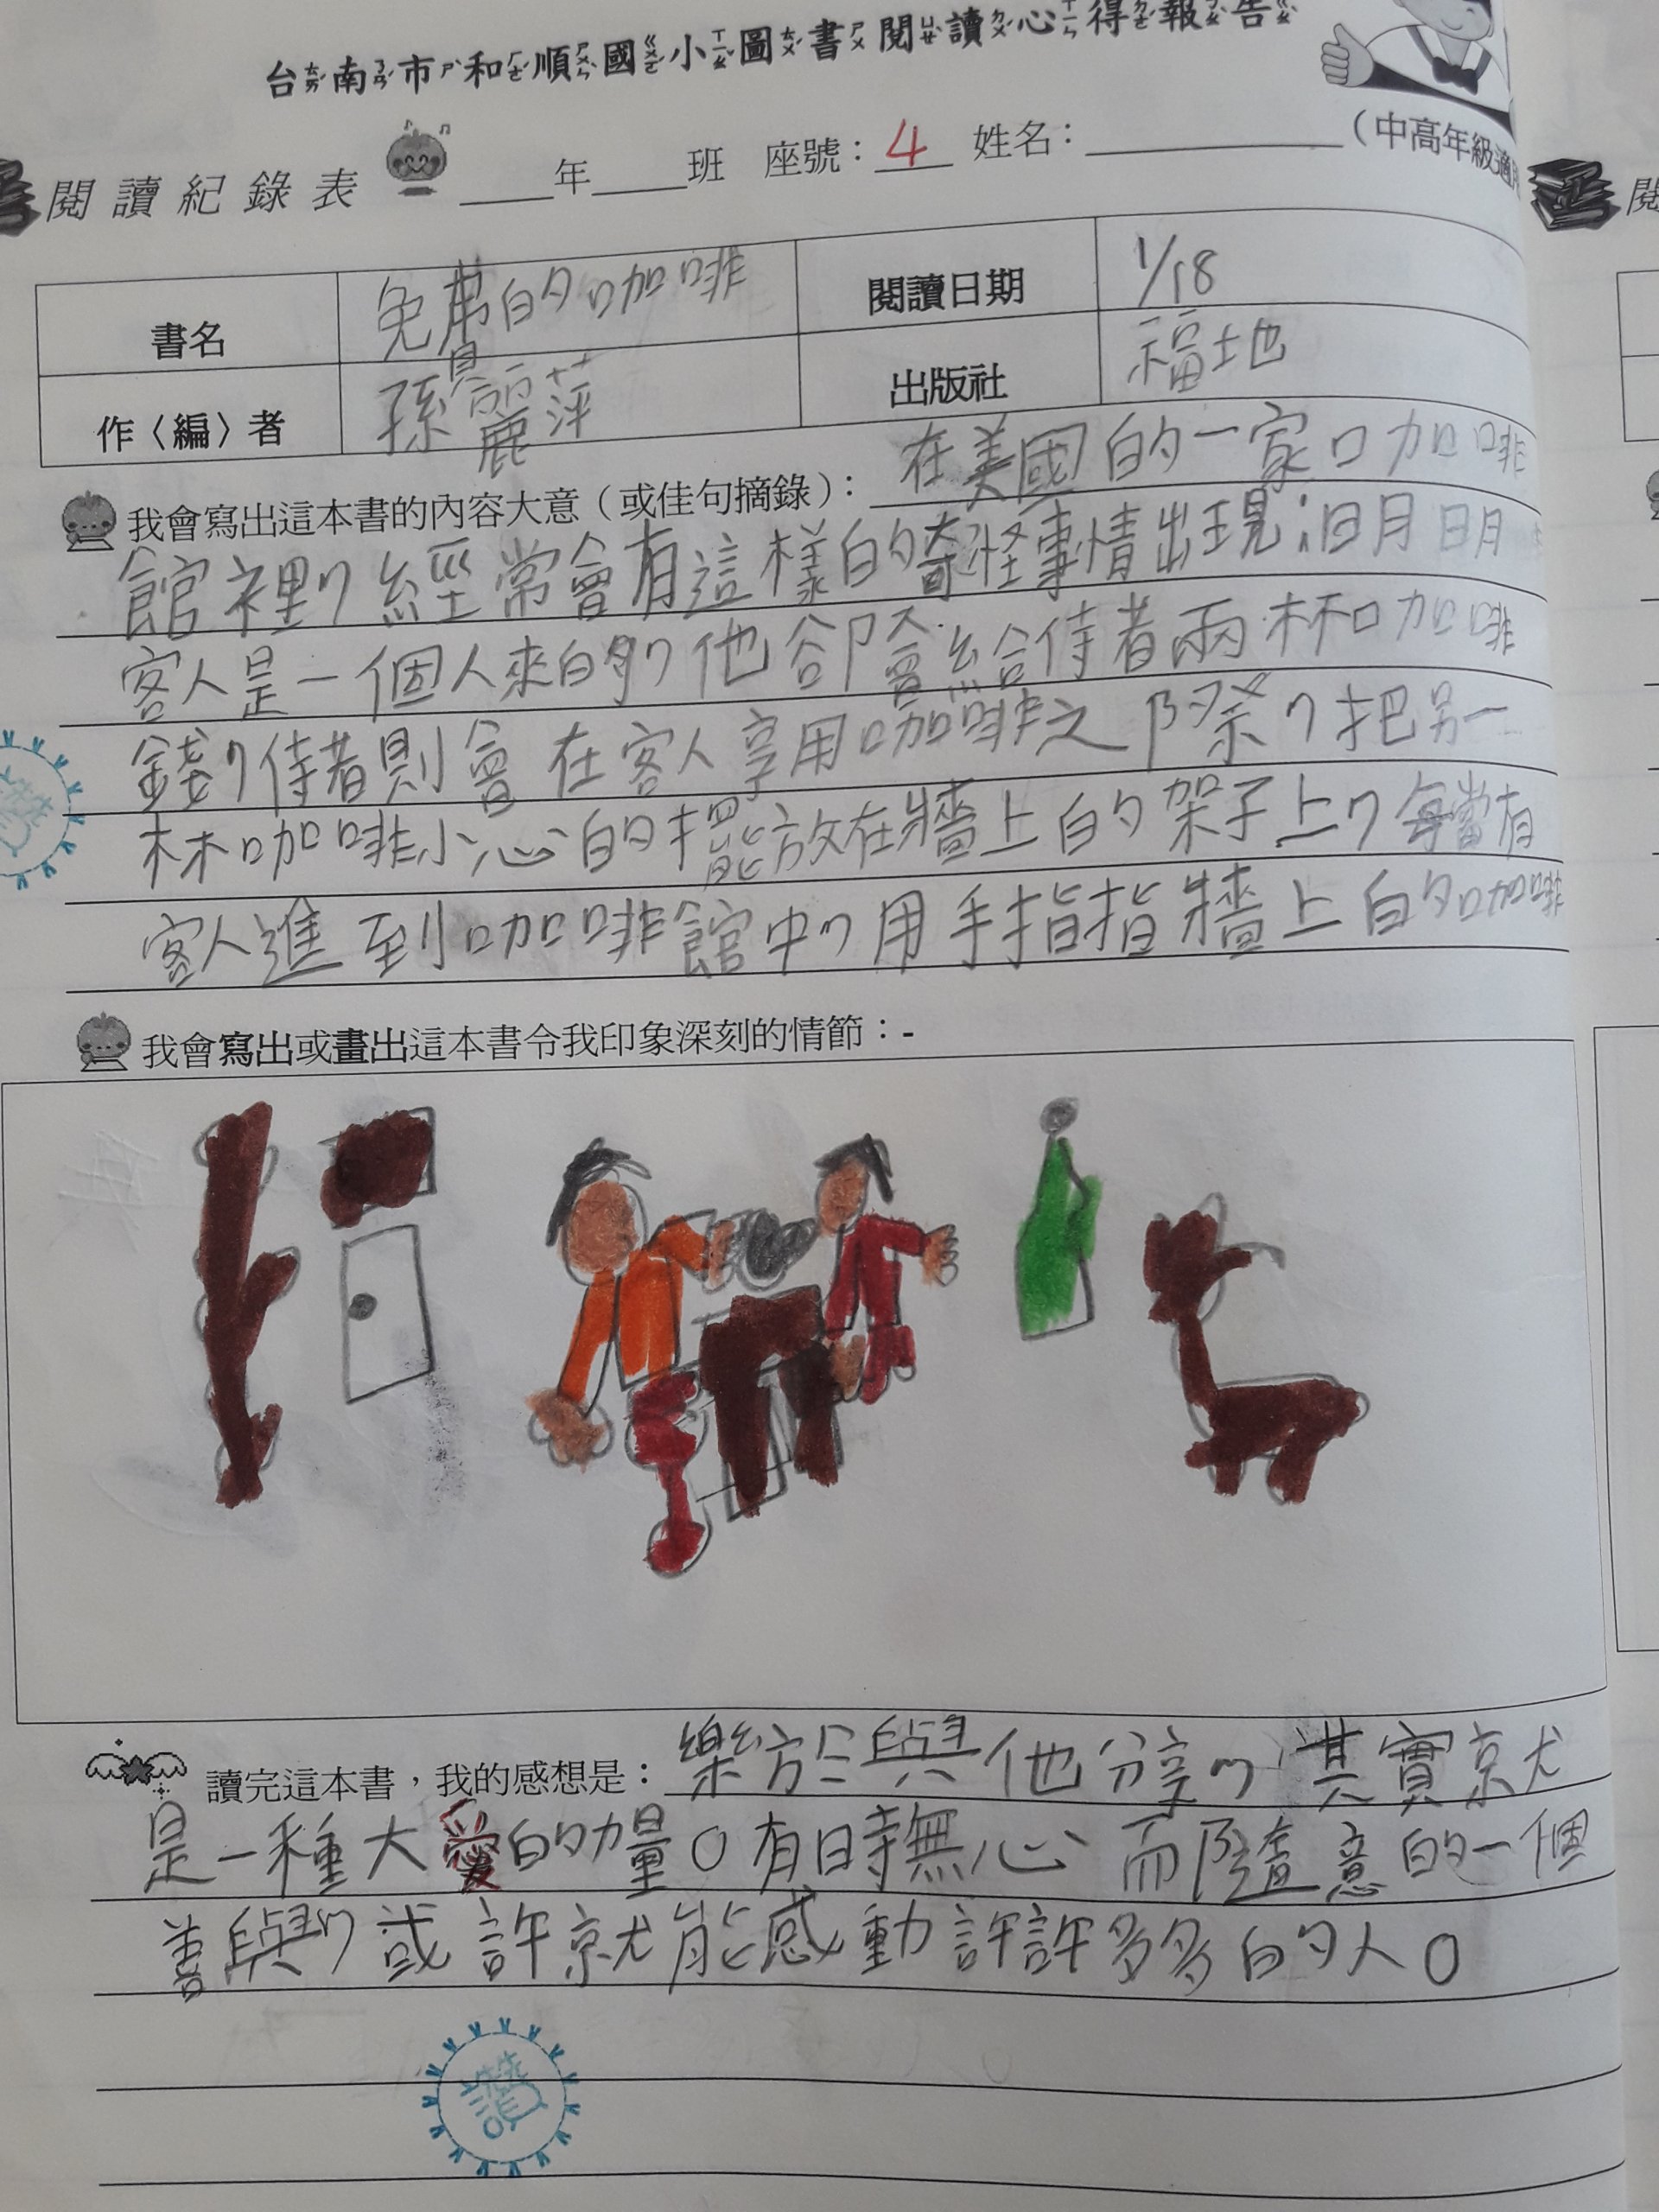 台南市和順國小圖書閱讀心得報告
閱讀紀錄表 ____年____班 座號：4 姓名：________（中高年級適用
書名 免費的咖啡 閱讀日期 1/18
作〈編〉者 孫麗萍 出版社 福地
我會寫出這本書的內容大意（或佳句摘錄）：在美國的一家咖啡
館裡，經常會有這樣的奇怪事情出現；明明
客人是一個人來的，他卻會給侍者兩杯咖啡
錢，侍者則會在客人享用咖啡之際，把另一
杯咖啡小心的擺放在牆上的架子上，每當有
客人進到咖啡館中，用手指指牆上的咖啡
我會寫出或畫出這本書令我印象深刻的情節：-
讀完這本書，我的感想是：樂於與他分享，其實就
是一種大愛的力量。有時無心而隨意的一個
善與，或許就能感動許許多多的人。
讚
閱